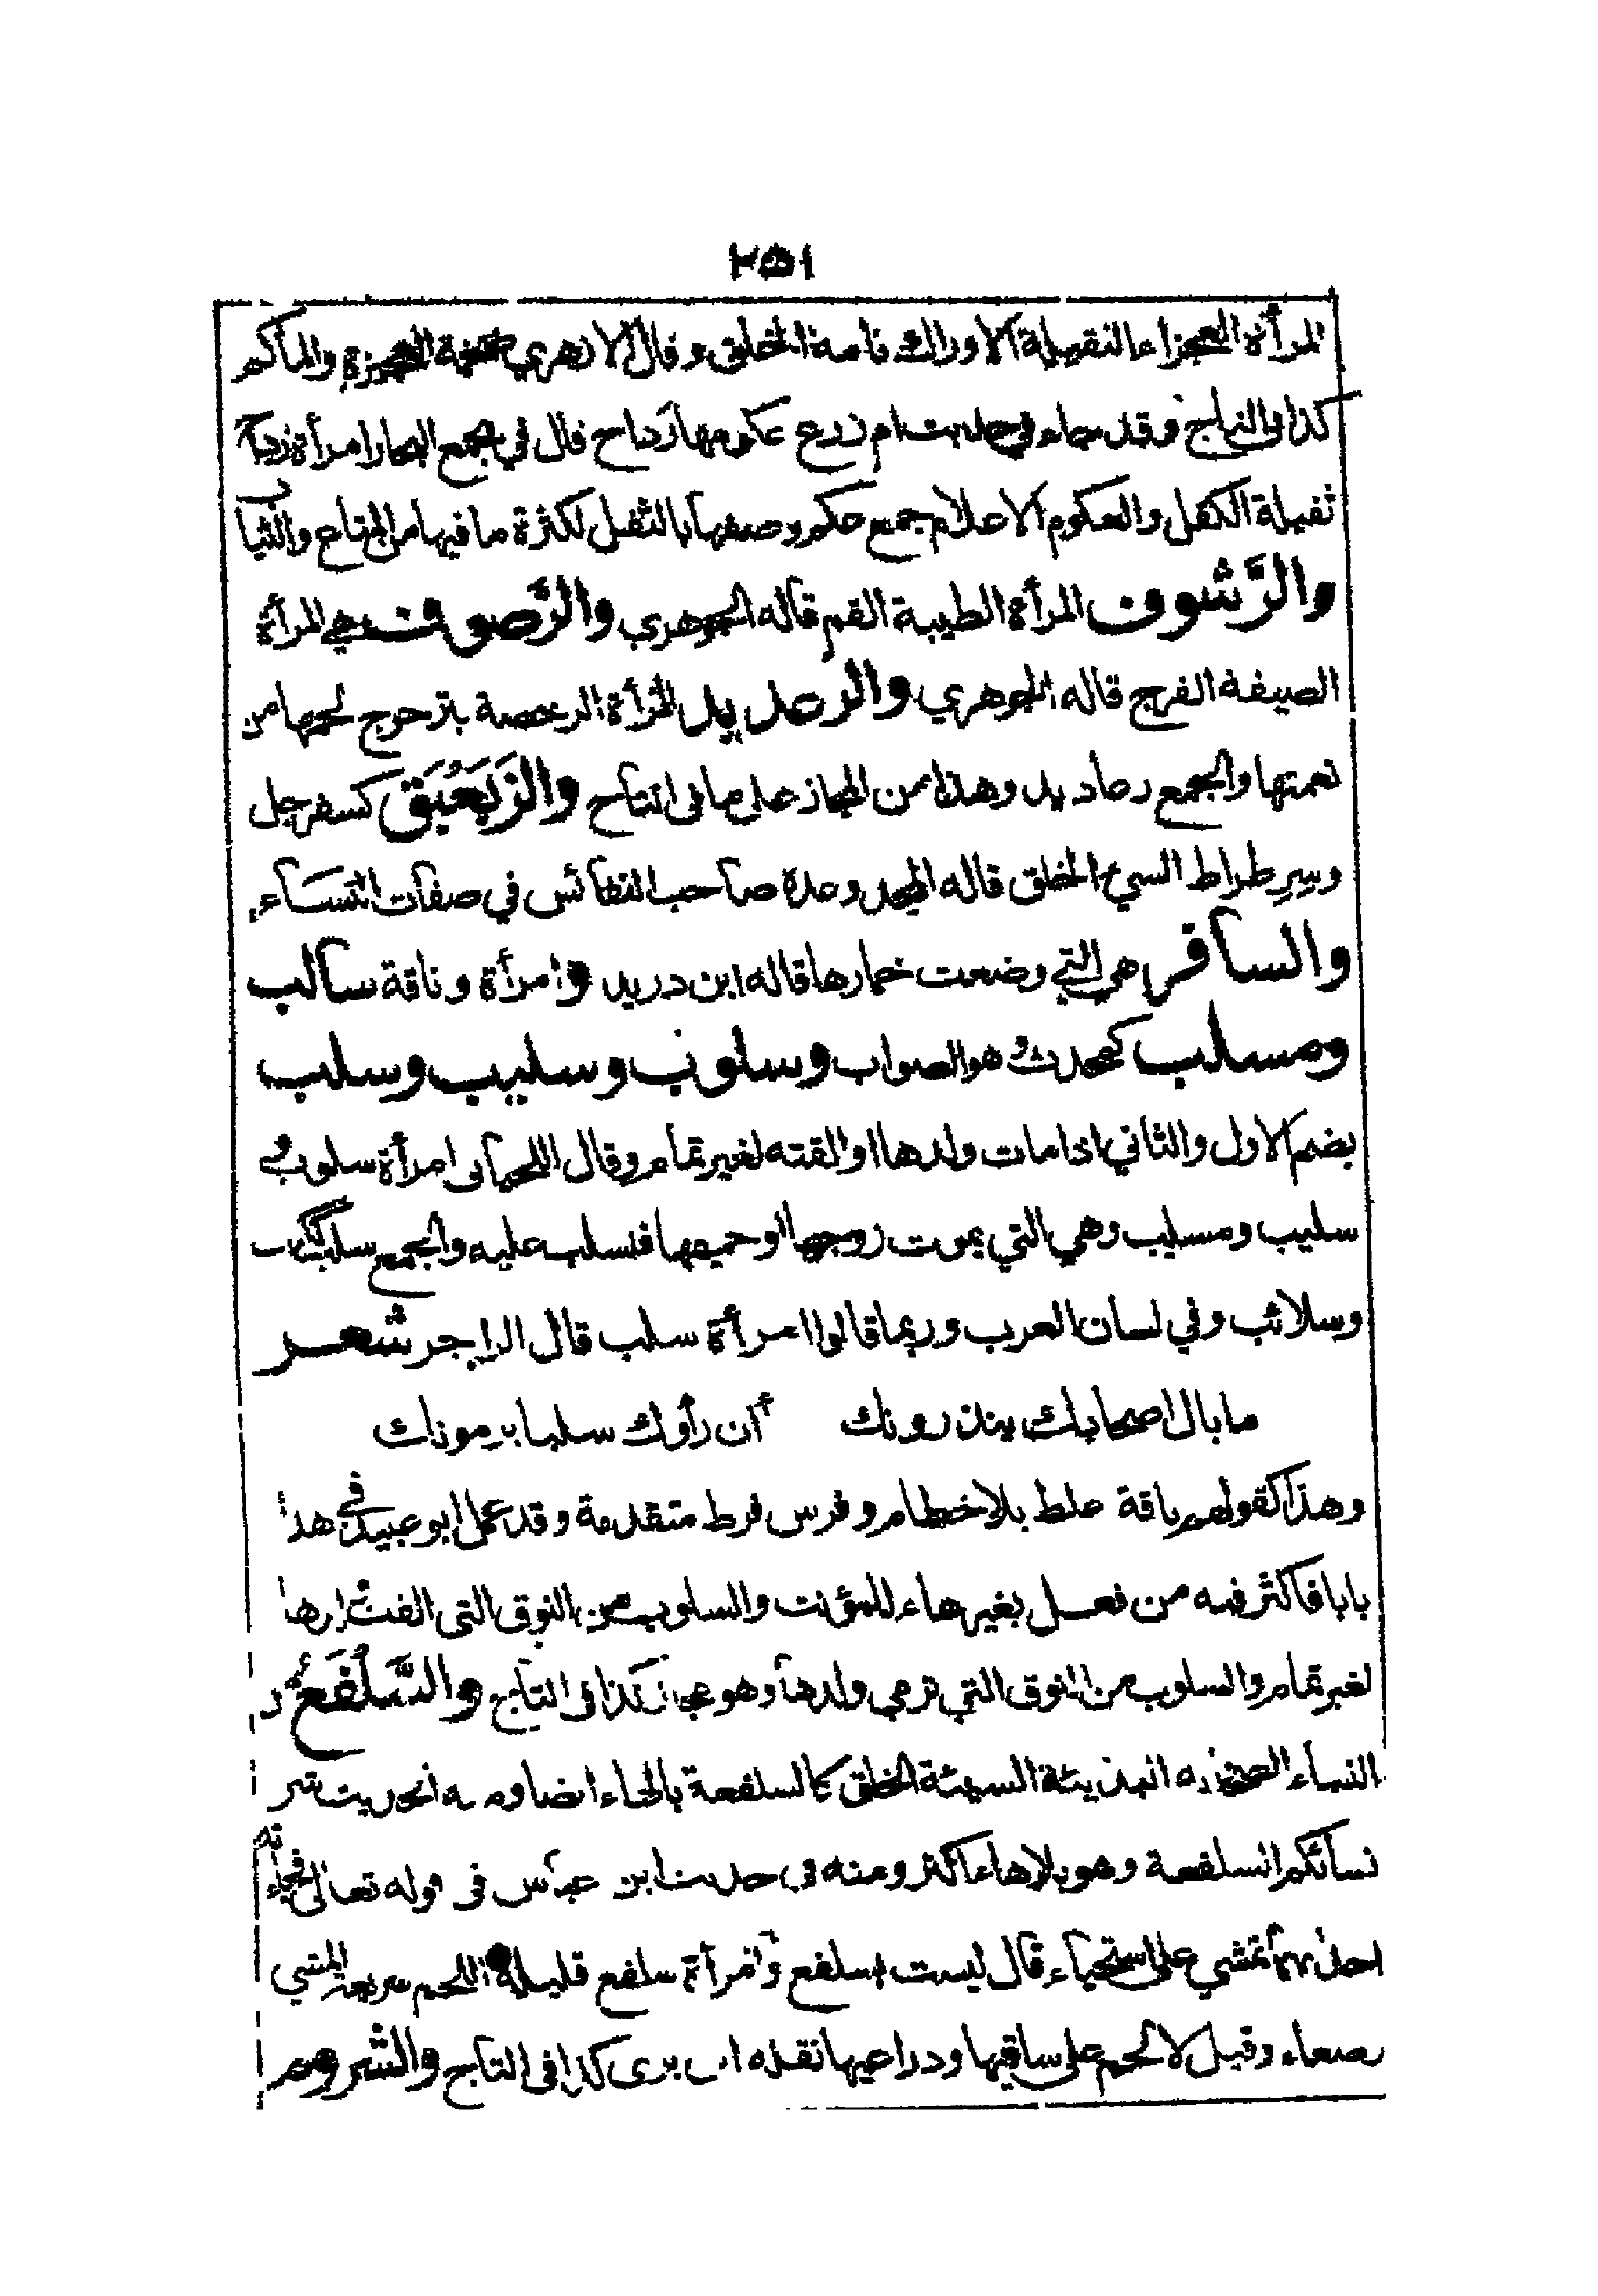 ٢٥١
المرأة العجزاء الثقيلة الاوراك تامة الخلق وقال الازهري ضخمة العجيزة والمأكم
كذا في التاج وقد جاء في حديث ام زرع عكومها رداح قال في مجمع البحار امرأة رداح
ثقيلة الكفل والعكوم الاعلام جمع عكم وصفها بالثقل لكثرة ما فيها من المتاع والثياب
والرَّشوف المرأة الطيبة الفم قاله الجوهري والرَّصوف هي المرأة
الضيقة الفرج قاله الجوهري والرعديد المرأة الرخصة يترجرج لحمها من
نعمتها والجمع رعاديد وهذا من المجاز على ما في التاج والزَبَعْبَق كسفرجل
وسِرِطراط السيئ الخلق قاله المجد وعده صاحب النفائس في صفات النساء
والسافر هي التي وضعت خمارها قاله ابن دريد وامرأة وناقة سالب
ومسلب كمحدث وهو الصواب وسلوب وسليب وسلب
بضم الاول والثاني اذا مات ولدها او القته لغير تمام وقال اللحياني امرأة سلوب و
سليب ومسليب وهي التي يموت زوجها او حميمها فتسلب عليه والجمع سلب ككتب
وسلائب وفي لسان العرب وربما قالوا امرأة سلب قال الراجز شعر
ما بال اصحابك ينذرونك أأن رأوك سلبا يرمونك
وهذا كقولهم ناقة علط بلا خطام وفرس فرط متقدمة وقد عمل ابو عبيد في هذا
بابا فاكثر فيه من فعل بغير هاء للمؤنث والسلوب من النوق التي القت ولدها
لغير تمام والسلوب من النوق التي ترمي ولدها وهو مجاز كذا في التاج والسَّلْفَع من
النساء الصخابة البذيئة السيئة الخلق كالسلفعة بالهاء ايضا ومنه الحديث شر
نسائكم السلفعة وهو بلا هاء اكثر ومنه في حديث ابن عباس في قوله تعالى فجاءته
احداهما تمشي على استحياء قال ليست بسلفع وامرأة سلفع قليلة اللحم سريعة المشي
رصعاء وقيل لا لحم على ساقيها وذراعيها نقله ابن بري كذا في التاج والشروم